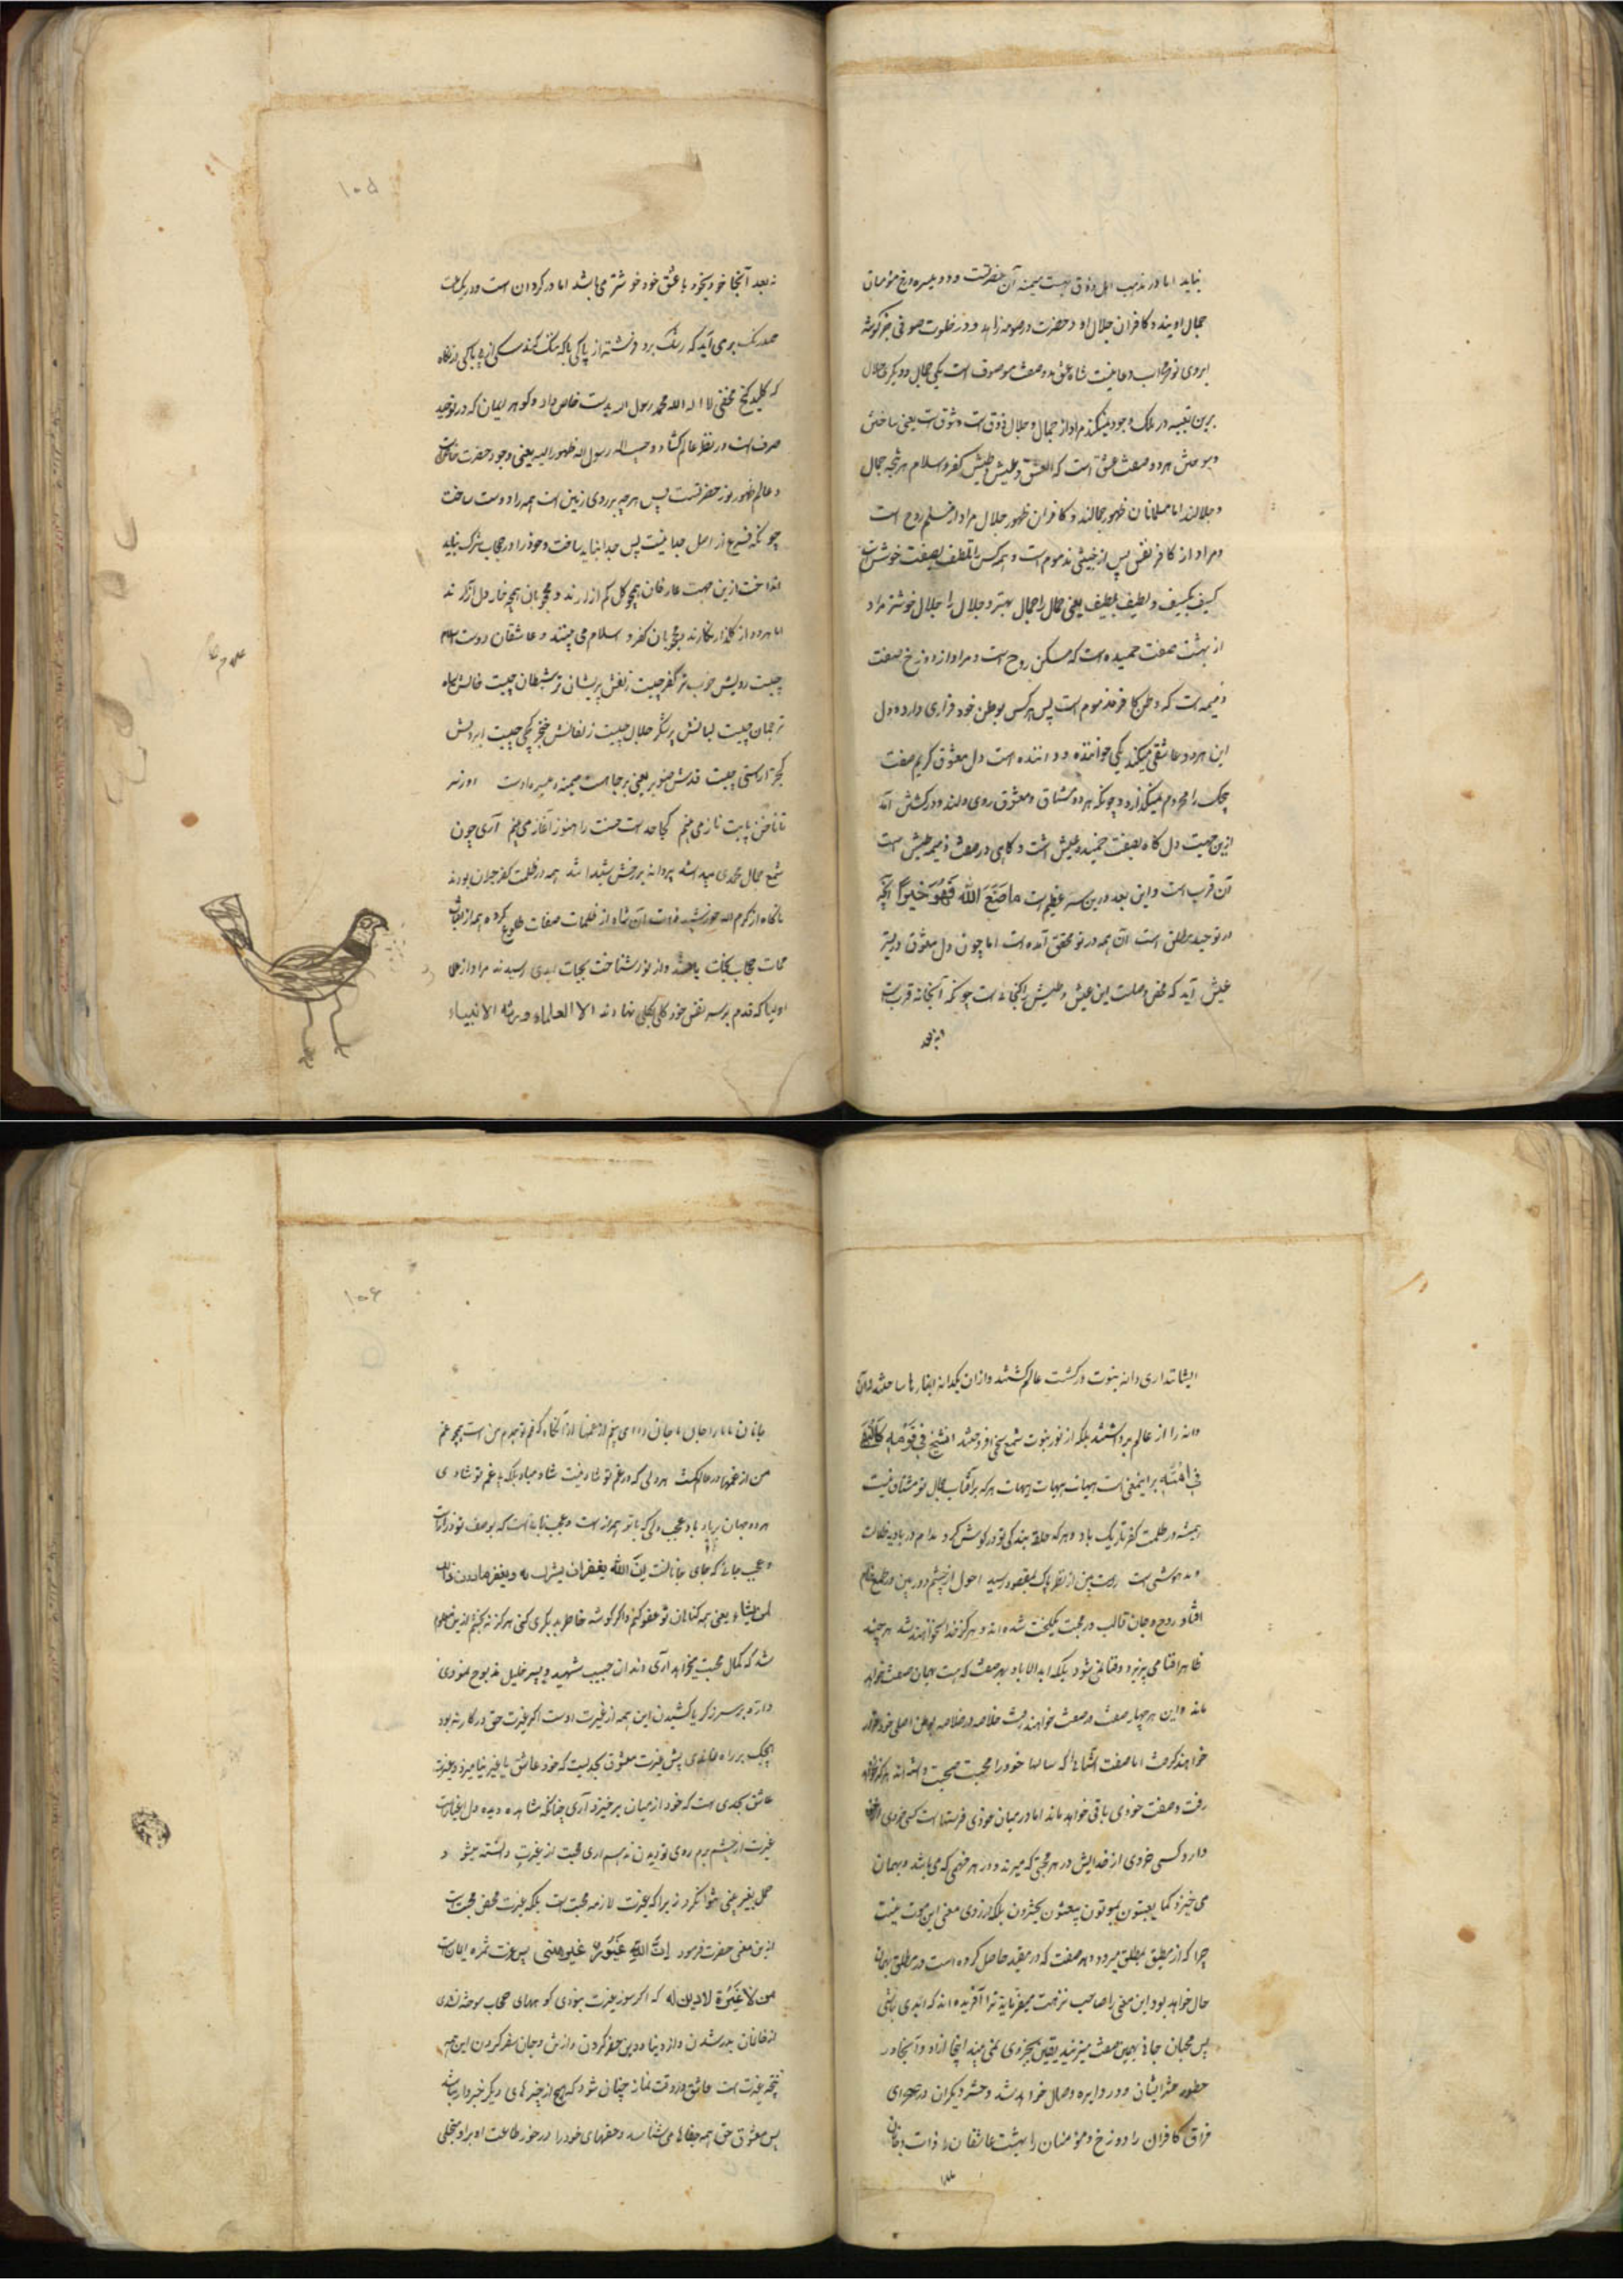 نیاید اما در مذهب اهل ذوق بهشت میمنه آن حضرتست و دوزخ میسره مؤمنان
جمال اویند و کافران جلال او و حضرت در صومعه زاهد و در خلوت صوفی جز گوشه
ابروی تو محراب دعا نیست شاه عشق بدو صفت موصوف است یکی جمال و دیگری جلال
در ملک وجود میکند مراد از جمال و جلال ذوق است و شوق است یعنی ساختن
و سوختن هر دو صفت عشق است که العشق و عیش و طیش کفر و اسلام هر نتیجه جمال
و جلالند اما مسلمانان ظهور جمالند و کافران ظهور جلال مراد از مسلم روح است
و مراد از کافر نفس پس از خبیثی مذموم است و هر کس را لطف بصفت خوش است
کثیف بکثیف و لطیف بلطیف یعنی جمال را جمال بهتر و جلال را جلال خوشتر مراد
از بهشت صفت حمیده است که مسکن روح است و مراد از دوزخ صفت
ذمیمه است که وطن کافر مذموم است پس هر کس بوطن خود قراری دارد و دل
این هر دو عاشقی میکند یکی خوانده و دو راننده است دل معشوق کریم صفت
هیچیک را محروم نمیگذارد و چونکه هر دو مشتاق و معشوق روی ویند و در کشش اند
ازین جهت دل گاه بصفت حمیده عیش است و گاهی در صفت ذمیمه طیش است
آن قرب است و این بعد و درین سر عظیم است ما صنع الله فهو خیرا آنچه
در توحید مطلق است آن همه در تو محقق آمده است اما چون دل معشوق در بستر
عیش آید که محض وصلت این عیش و طیش را گنجا نیست چونکه آنجا نه قربست
نه بعد
نه بعد آنجا خود بخود با عشق خود خوشتر می باشد اما در گردان است و در یک صفت
صد رنگ بر می آید که رشک برد فرشته از پاکی ما گه ننگ کند سگ از ناپاکی ما
که کلید گنج مخفی لا اله الا الله محمد رسول الله بدست خاص داد و گوهر بیان که در توحید
صرف است در نقطه عالم گشاد و حبیب الله رسول الله ظهور الله یعنی وجود حضرت
و عالم ظهور نور حضرتست پس هر چه بر روی زمین است همه را دوست ساخت
چونکه فرع از اصل جدا نیست پس جدا نباید ساخت و خود را در حجاب شرک نباید
انداخت ازین جهت عارفان همچو گل کم آزارند و محجوبان همچو خار دل آزارند
اما هر دو از گلزار نگارند محجوبان کفر و اسلام می بینند و عاشقان دوست
چیست رویش خوب تر کفر چیست زلفش پریشان تر شیطان چیست خالش سیاه
ترجمان چیست لبانش پر شکر جلال چیست زلفانش خنجر کجی چیست ابرویش
کج تر راستی چیست قدش صنوبر یعنی هر جا هست میمنه و میسره اوست از سر
تا ناخن پایت ناز می بینم کجا حد است حسنت را هنوز آغاز می بینم آری چون
شمع جمال محمدی پیدا شد پروانه بر رخش شیدا شد همه در ظلمت کفر حیران بودند
ناگاه از کرم الله خورشید ذات آن شاه از ظلمات صفات طلوع کرده همه از
ممات حجاب نجات یافتند و از نور شناخت بحیات ابدی رسیدند مراد از
اولیا که قدم بر سر نفس خود کلی نهادند الا العلماء ورثة الانبیاء
۱۰۵
ایشانند آری دانه نبوت در کشت عالم کشتند و از آن یکدانه انبارها ساختند و آن
دانه را از عالم برداشتند بلکه از نور نبوت شمع شیخی افروختند الشیخ فی قومه کالنبی
فی امته برین معنی است هیهات هیهات هیهات هر که بر آفتاب جمال تو مشتاق نیست
همیشه در ظلمت کفر تاریک باد و هر که حلقه بندگی تو در گوش نکرد مدام در بادیه ظلمات
و مدهوشی است راست بین از نظر پاک بمقصود رسید احول از چشم دوبین در طمع خام
افتاد روح و جان قالب در محبت یکلخت شده اند و هرگز جدا نخواهند شد هر چند
ظاهرا فنا می پذیرد و فانی نشود بلکه ابد الآباد بهر صفت که هست بهمان صفت خواهد
ماند و این هر چهار صفت در صفت خواهند گشت خلاصه در خلاصه بوطن اصلی خود قرار
خواهند گرفت اما صفت آشناها که سالها خود را محبت صحبت داشته اند هرگز نخواهد
رفت و صفت خودی باقی خواهد ماند اما در میان خودی فرقها است کسی خودی
دارد و کسی خودی از خدایش در هر محبتی که میرند و در هر فهمی که می باشد و بهمان
می خیزد کما یعیشون یموتون یبعثون یحشرون بلکه از روی معنی این موت نیست
چرا که از مطلق بمطلق میرود و هر صفت که در مقید حاصل کرده است در مطلق بهمان
حال خواهد بود این معنی را صاحب نزهت میفرماید ترا آفریده اند که ابدی باشی
پس محبان جا نا بهمین صفت میزیند یقین بجز روی تمی بینند اینجا آزاد و آنجا در
حظوظ حشر ایشان در دایره وصال خواهد شد و حشر دیگران در صحرای
فراق کافران را دوزخ و مومنان را بهشت عاشقان را ذات
جانان ما را جان ما جان از غمها آزاد آنگاه که غم تو همدم من است هیچ غم
من از غمها در عالم نیست هر دلی که در غم تو شاد نیست شاد مباد بلکه با غم تو شادی
هر دو جهان بر باد باد عجب دلی که با تو همراز است و عجب زبانی است که بوصف تو در راز است
و عجب جانی که جای جانانست ان الله لا یغفر ان یشرک به و یغفر ما دون ذلک
لمن یشاء یعنی همه گناهان تو عفو کنم و اگر گوشه خاطر بدیگری کنی هرگز نبخشم ازین معلوم
شد که کمال محبت میخواهد آری دندان حبیب شهید و پسر خلیل مذبوح نمودن
و اره بر سر زکریا کشیدن این همه از غیرت اوست اگر غیرت حق در کار نبودی
هیچیک بر راه نماندی پس غیرت معشوق بحدیست که خود عاشق با غیر نیامیزد و غیرت
عاشق بحدی است که خود از میان برخیزد آری چنانکه مشاهده دیده دل اغیار است
غیرت از چشم برم روی تو دیدن ندهم آری محبت از غیرت دانسته میشود
حمل بغیر معنی نتوان کرد زیرا که غیرت لازمه محبت است بلکه غیرت محض محبت است
ازین معنی حضرت فرمود ان الله غیور غیرت ثمره ایمان است
من لا غیرة لا دین له که اگر سوز غیرت نبودی کوههای حجاب سوخته نشدی
از خانمان بدر شدن و از دنیا و دین حذر کردن و از تن و جان سفر کردن این همه
نتیجه غیرت است عاشق در وقت نماز چنان شود که هیچ از چیزهای دیگر خبردار نباشد
پس معشوق حق همه جفاها می شناسد و حقهای خود را در خور طاعت او براو متجلی
۱۰۶